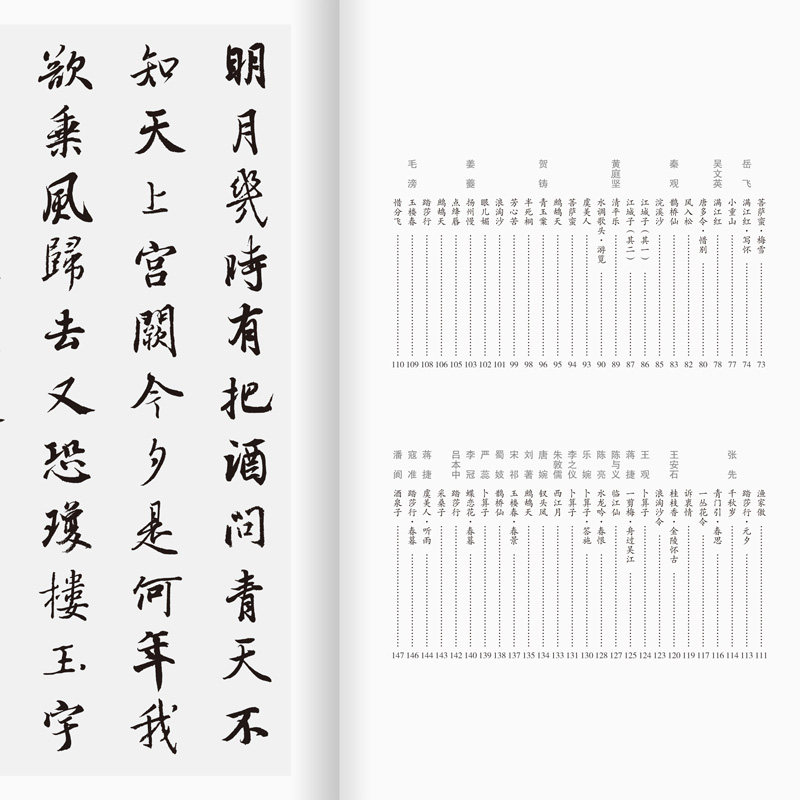 菩萨蛮·梅雪 73
岳飞 满江红·写怀 74
小重山 77
吴文英 满江红 78
唐多令·惜别 80
风入松 82
秦观 鹊桥仙 83
浣溪沙 85
江城子（其一） 86
江城子（其二） 87
黄庭坚 清平乐 89
水调歌头·游览 90
虞美人 93
菩萨蛮 94
鹧鸪天 95
贺铸 青玉案 96
半死桐 98
芳心苦 99
浪淘沙 101
眼儿媚 102
姜夔 扬州慢 103
点绛唇 105
鹧鸪天 106
踏莎行 108
毛滂 玉楼春 109
惜分飞 110
渔家傲 111
踏莎行·元夕 113
张先 千秋岁 114
青门引·春思 116
一丛花令 117
诉衷情 119
王安石 桂枝香·金陵怀古 120
浪淘沙令 123
王观 卜算子 124
蒋捷 一剪梅·舟过吴江 125
陈与义 临江仙 127
陈亮 水龙吟·春恨 128
乐婉 卜算子·答施 130
李之仪 卜算子 131
朱敦儒 西江月 133
唐婉 钗头凤 134
刘著 鹧鸪天 135
宋祁 玉楼春·春景 137
蜀妓 鹊桥仙 138
严蕊 卜算子 139
李冠 蝶恋花·春暮 140
吕本中 踏莎行 142
采桑子 143
蒋捷 虞美人·听雨 144
寇准 踏莎行·春暮 146
潘阆 酒泉子 147
明月幾時有把酒問青天不
知天上宮闕今夕是何年我
欲乘風歸去又恐瓊樓玉宇